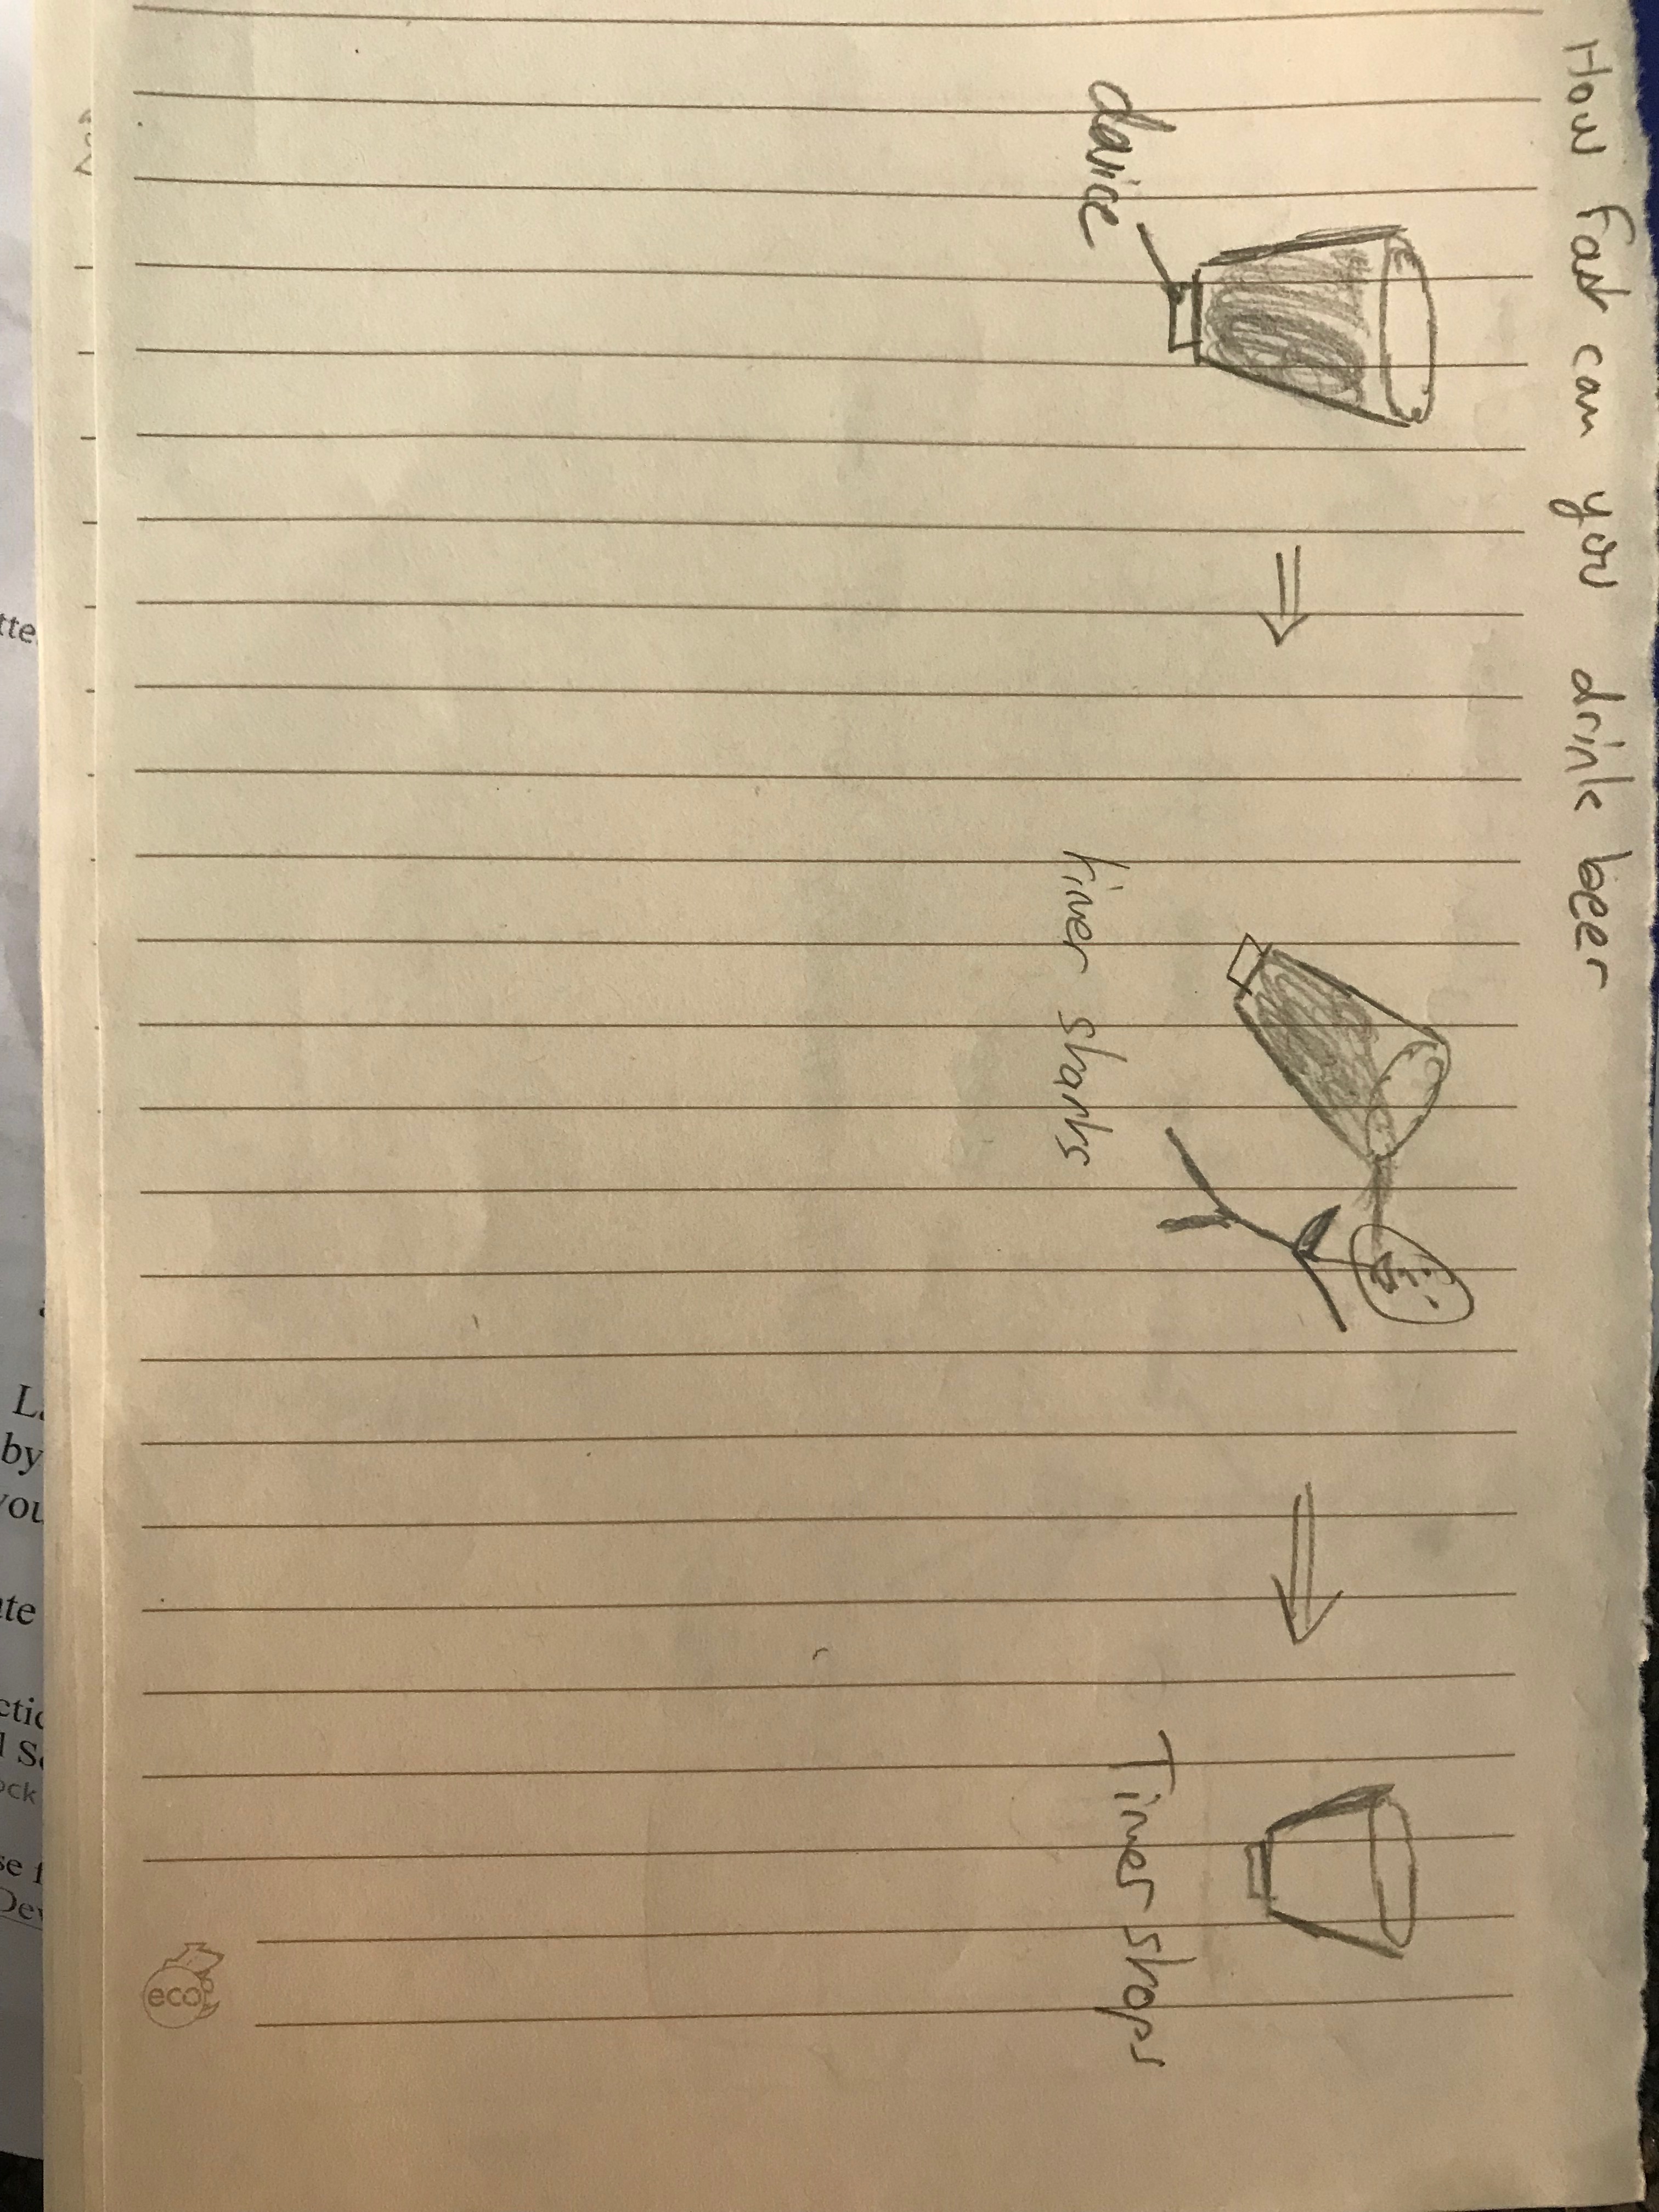 How Fast can you drink beer
davice
timer sharts
Timer shops
eco
tte
L
by
you
ate
ctic
l S
ock
se f
Dev